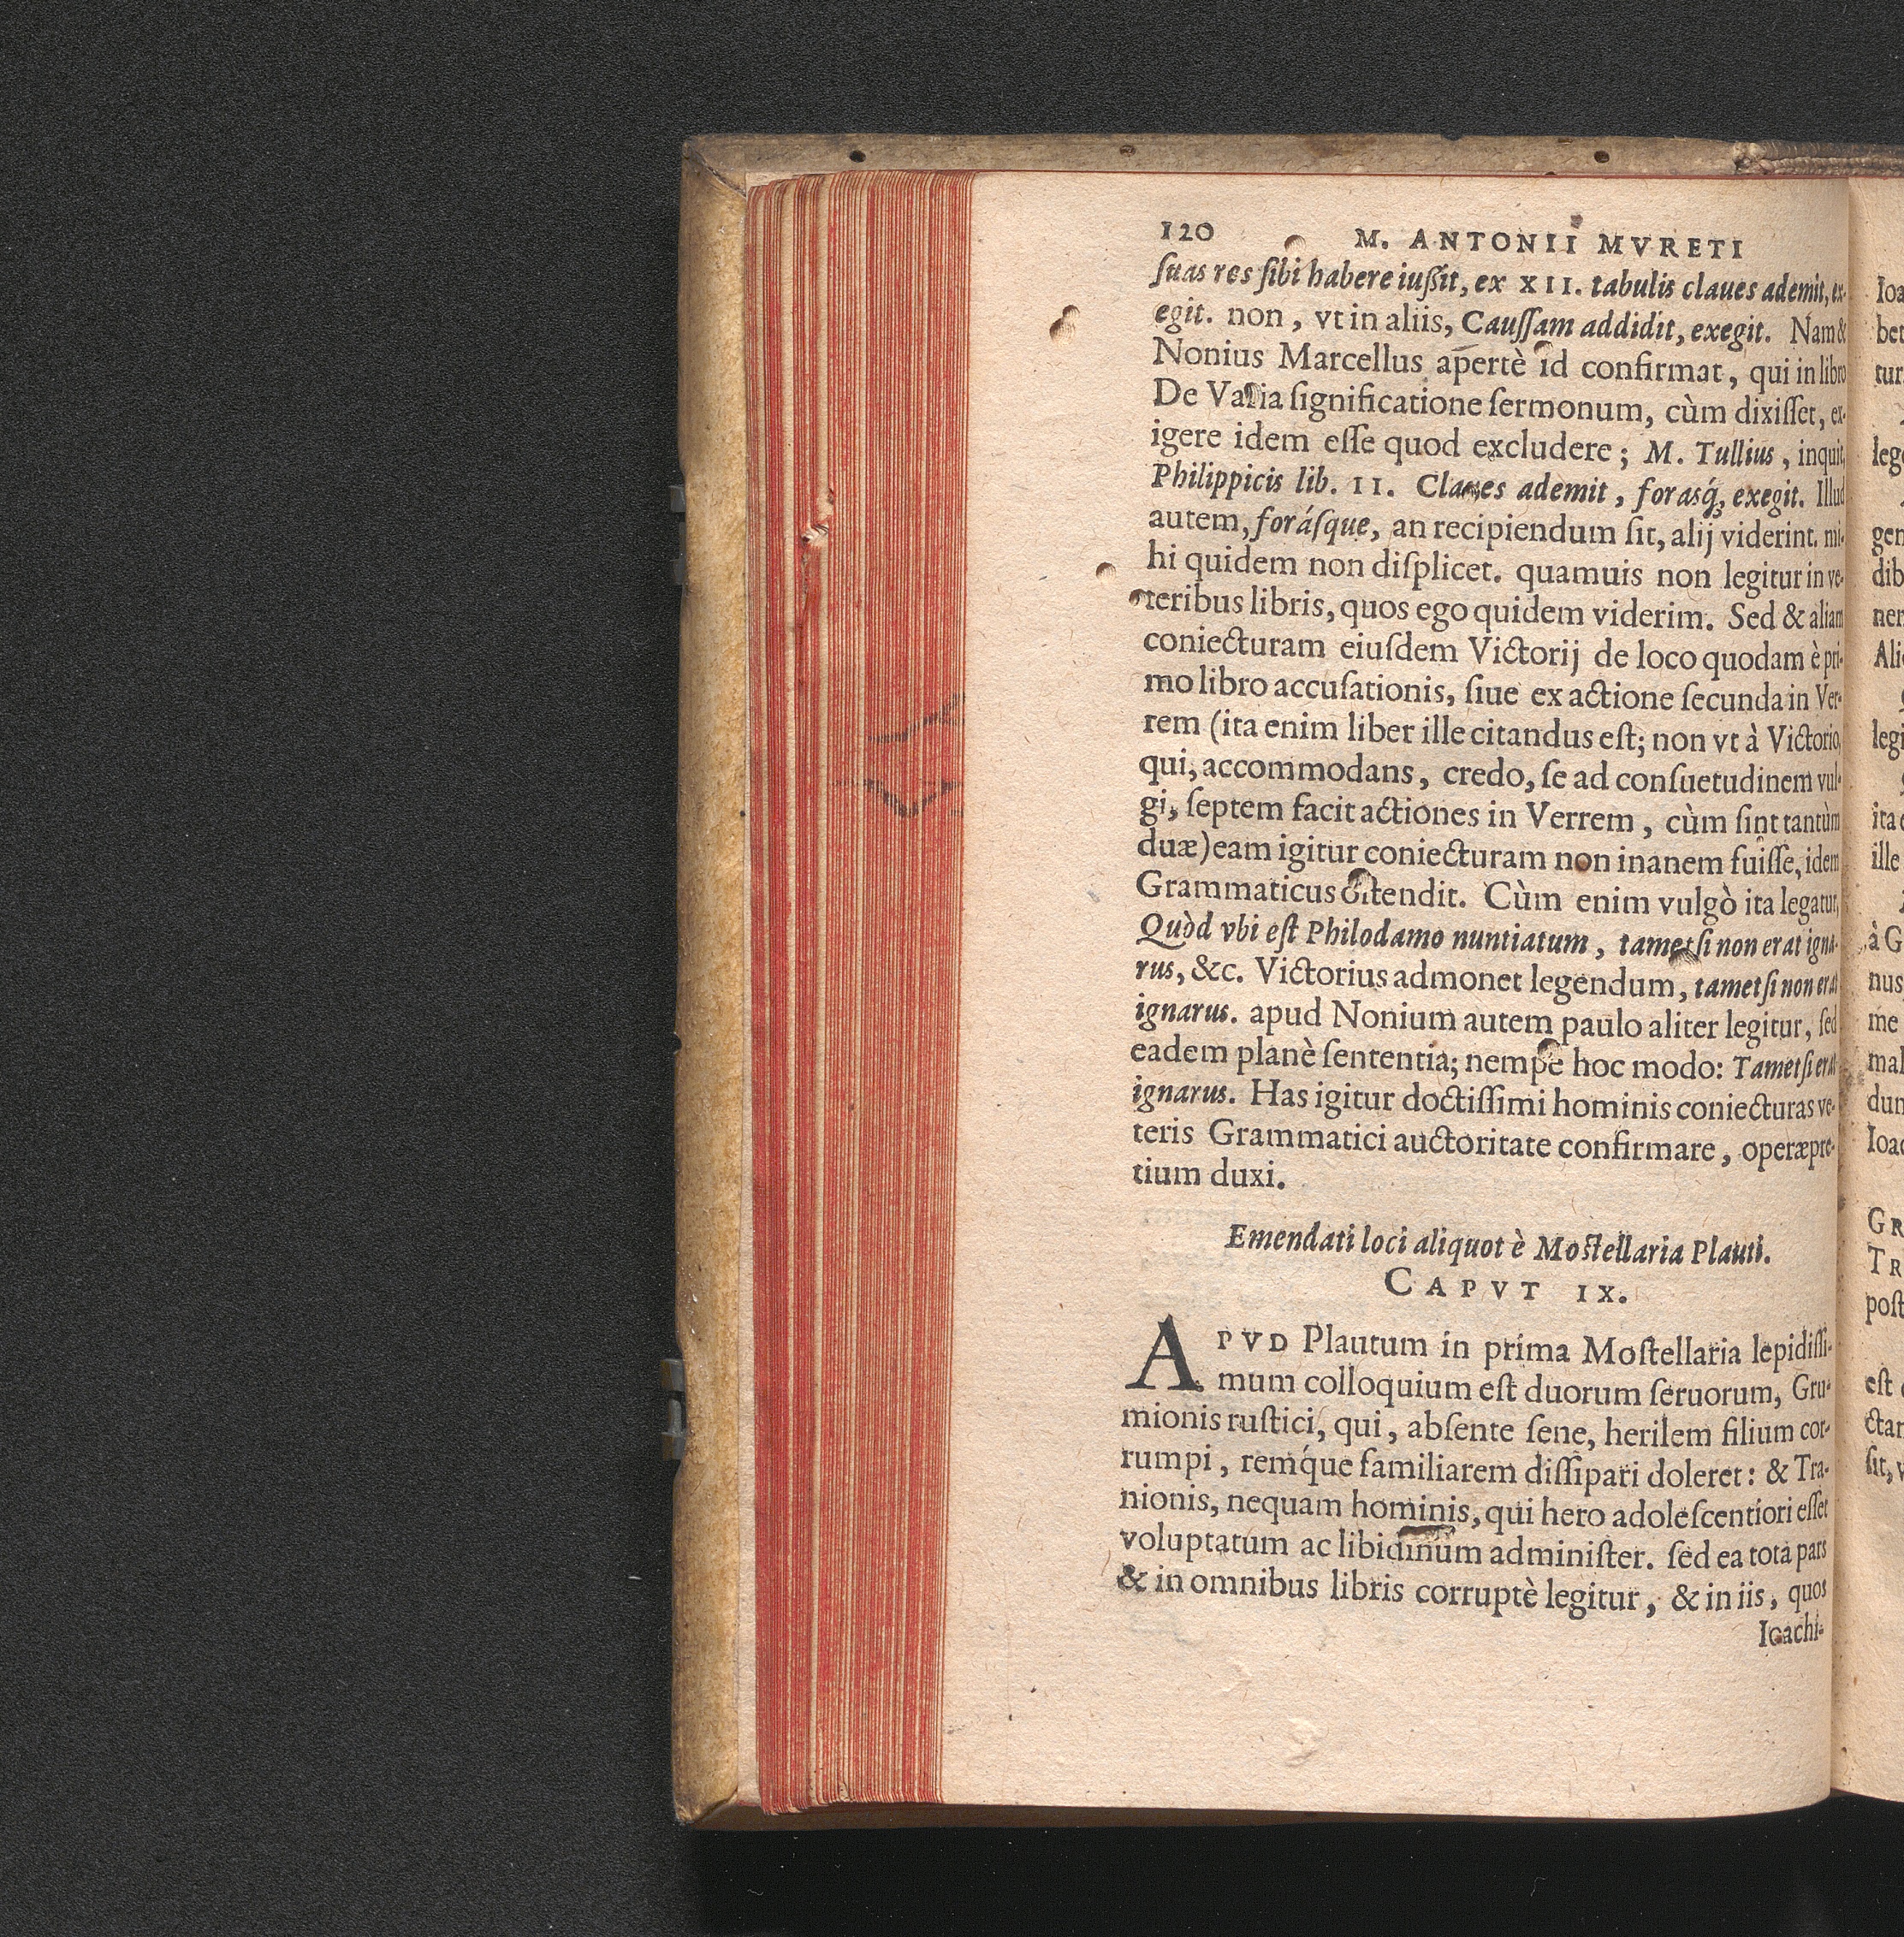 120 M. ANTONII MVRETI
ſuas res ſibi habere iuſsit, ex XII. tabulis claues ademit, ex-
egit. non, vt in aliis, Cauſſam addidit, exegit. Nam &
Nonius Marcellus apertè id confirmat, qui in libro
De Varia ſignificatione ſermonum, cùm dixiſſet, ex-
igere idem eſſe quod excludere; M. Tullius, inquit,
Philippicis lib. II. Claues ademit, forasq́; exegit. Illud
autem, foráſque, an recipiendum ſit, alij viderint. mi-
hi quidem non diſplicet. quamuis non legitur in ve-
teribus libris, quos ego quidem viderim. Sed & aliam
coniecturam eiuſdem Victorij de loco quodam è pri-
mo libro accuſationis, ſiue ex actione ſecunda in Ver-
rem (ita enim liber ille citandus eſt; non vt à Victorio,
qui, accommodans, credo, ſe ad conſuetudinem vul-
gi, ſeptem facit actiones in Verrem, cùm ſint tantùm
duæ) eam igitur coniecturam non inanem fuiſſe, idem
Grammaticus oſtendit. Cùm enim vulgò ita legatur,
Quòd vbi eſt Philodamo nuntiatum, tametſi non erat igna-
rus, &c. Victorius admonet legendum, tametſi non erat
ignarus. apud Nonium autem paulo aliter legitur, ſed
eadem planè ſententia; nempe hoc modo: Tametſi erat
ignarus. Has igitur doctiſſimi hominis coniecturas ve-
teris Grammatici auctoritate confirmare, operæpre-
tium duxi.
Emendati loci aliquot è Moſtellaria Plauti.
CAPVT IX.
APVD Plautum in prima Moſtellaria lepidiſſi-
mum colloquium eſt duorum ſeruorum, Gru-
mionis ruſtici, qui, abſente ſene, herilem filium cor-
rumpi, remq́ue familiarem diſſipari doleret: & Tra-
nionis, nequam hominis, qui hero adoleſcentiori eſſet
voluptatum ac libidinum adminiſter. ſed ea tota pars
& in omnibus libris corruptè legitur, & in iis, quos
Ioachi-